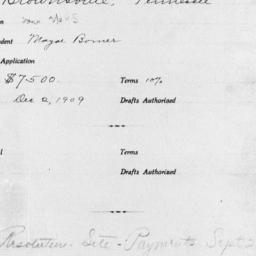 Brownsville, Tennessee
n
ndent Mayor Bomer
Application
$7500. Terms 10%
Dec 2, 1909 Drafts Authorized
l Terms
Drafts Authorized
Resolution - Site - Payments Sept 2